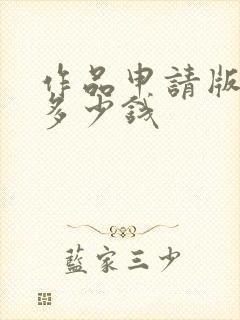 作品申請版
多少錢
藍家三少